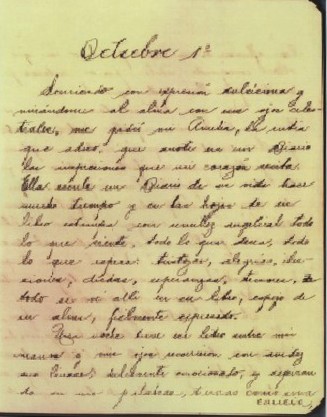 Octubre 1º
Sonriendo con expresión dulcísima y
mirándome al alma con sus ojos celes-
tiales, me pidió mi Amelia, la niña
que adoro, que anote en un Diario
las impresiones que mi corazón reciba.
Ella escribe un Diario de su vida hace
mucho tiempo y en las hojas de su
libro estampa con sencillez angelical todo
lo que siente, todo lo que desea, todo
lo que espera: tristezas, alegrías, ilu-
siones, dudas, esperanzas, temores,
todo se ve allí en su libro, espejo de
su alma, fielmente expresado.
Una noche tuve su libro entre mis
manos y mis ojos recorrían con avidez
sus líneas; dulcemente emocionado, y aspiran-
do en sus páginas, tiernas como una